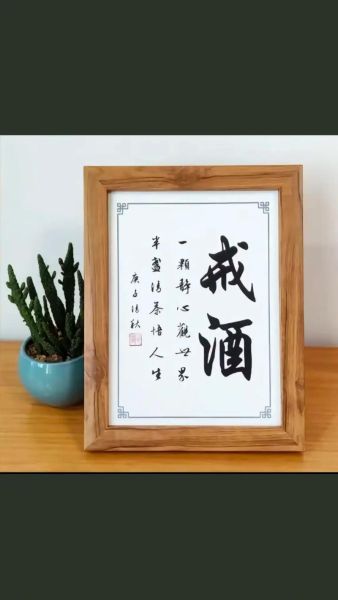 戒酒
一顆靜心觀世界
半盞清茶悟人生
庚子清秋